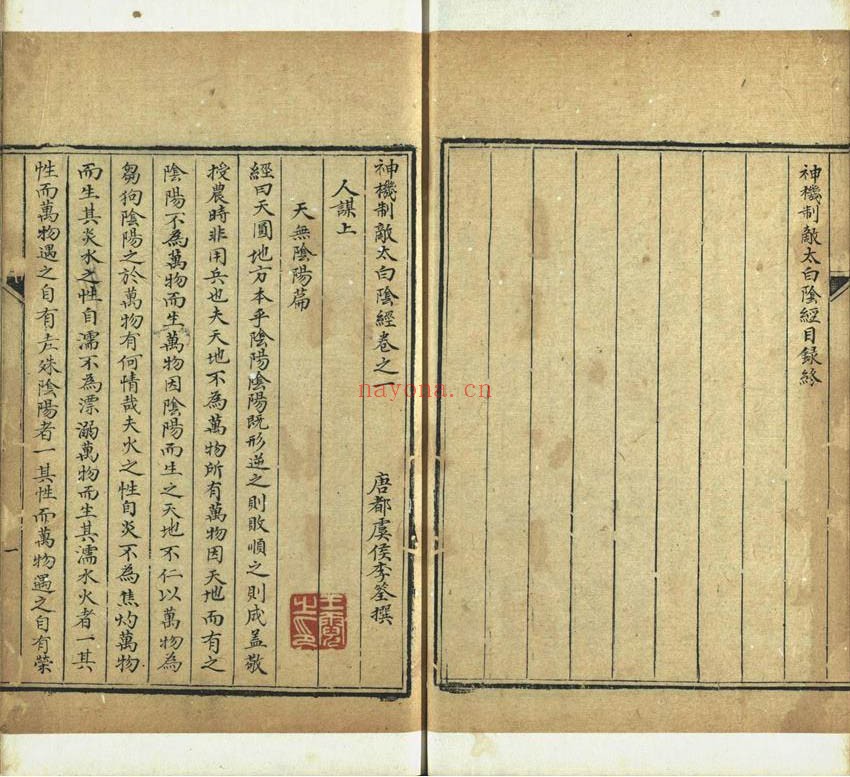 神機制敵太白陰經目録終
神機制敵太白陰經卷之一
唐都虞侯李筌撰
人謀上
天無陰陽篇
經曰天圓地方本乎陰陽陰陽既形逆之則敗順之則成盖敬
授農時非用兵也夫天地不為萬物所有萬物因天地而有之
陰陽不為萬物而生萬物因陰陽而生之天地不仁以萬物為
芻狗陰陽之於萬物有何情哉夫火之性自炎不為焦灼萬物
而生其炎水之性自濡不為漂溺萬物而生其濡水火者一其
性而萬物遇之自有差殊陰陽者一其性而萬物遇之自有榮
一
nayona.cn